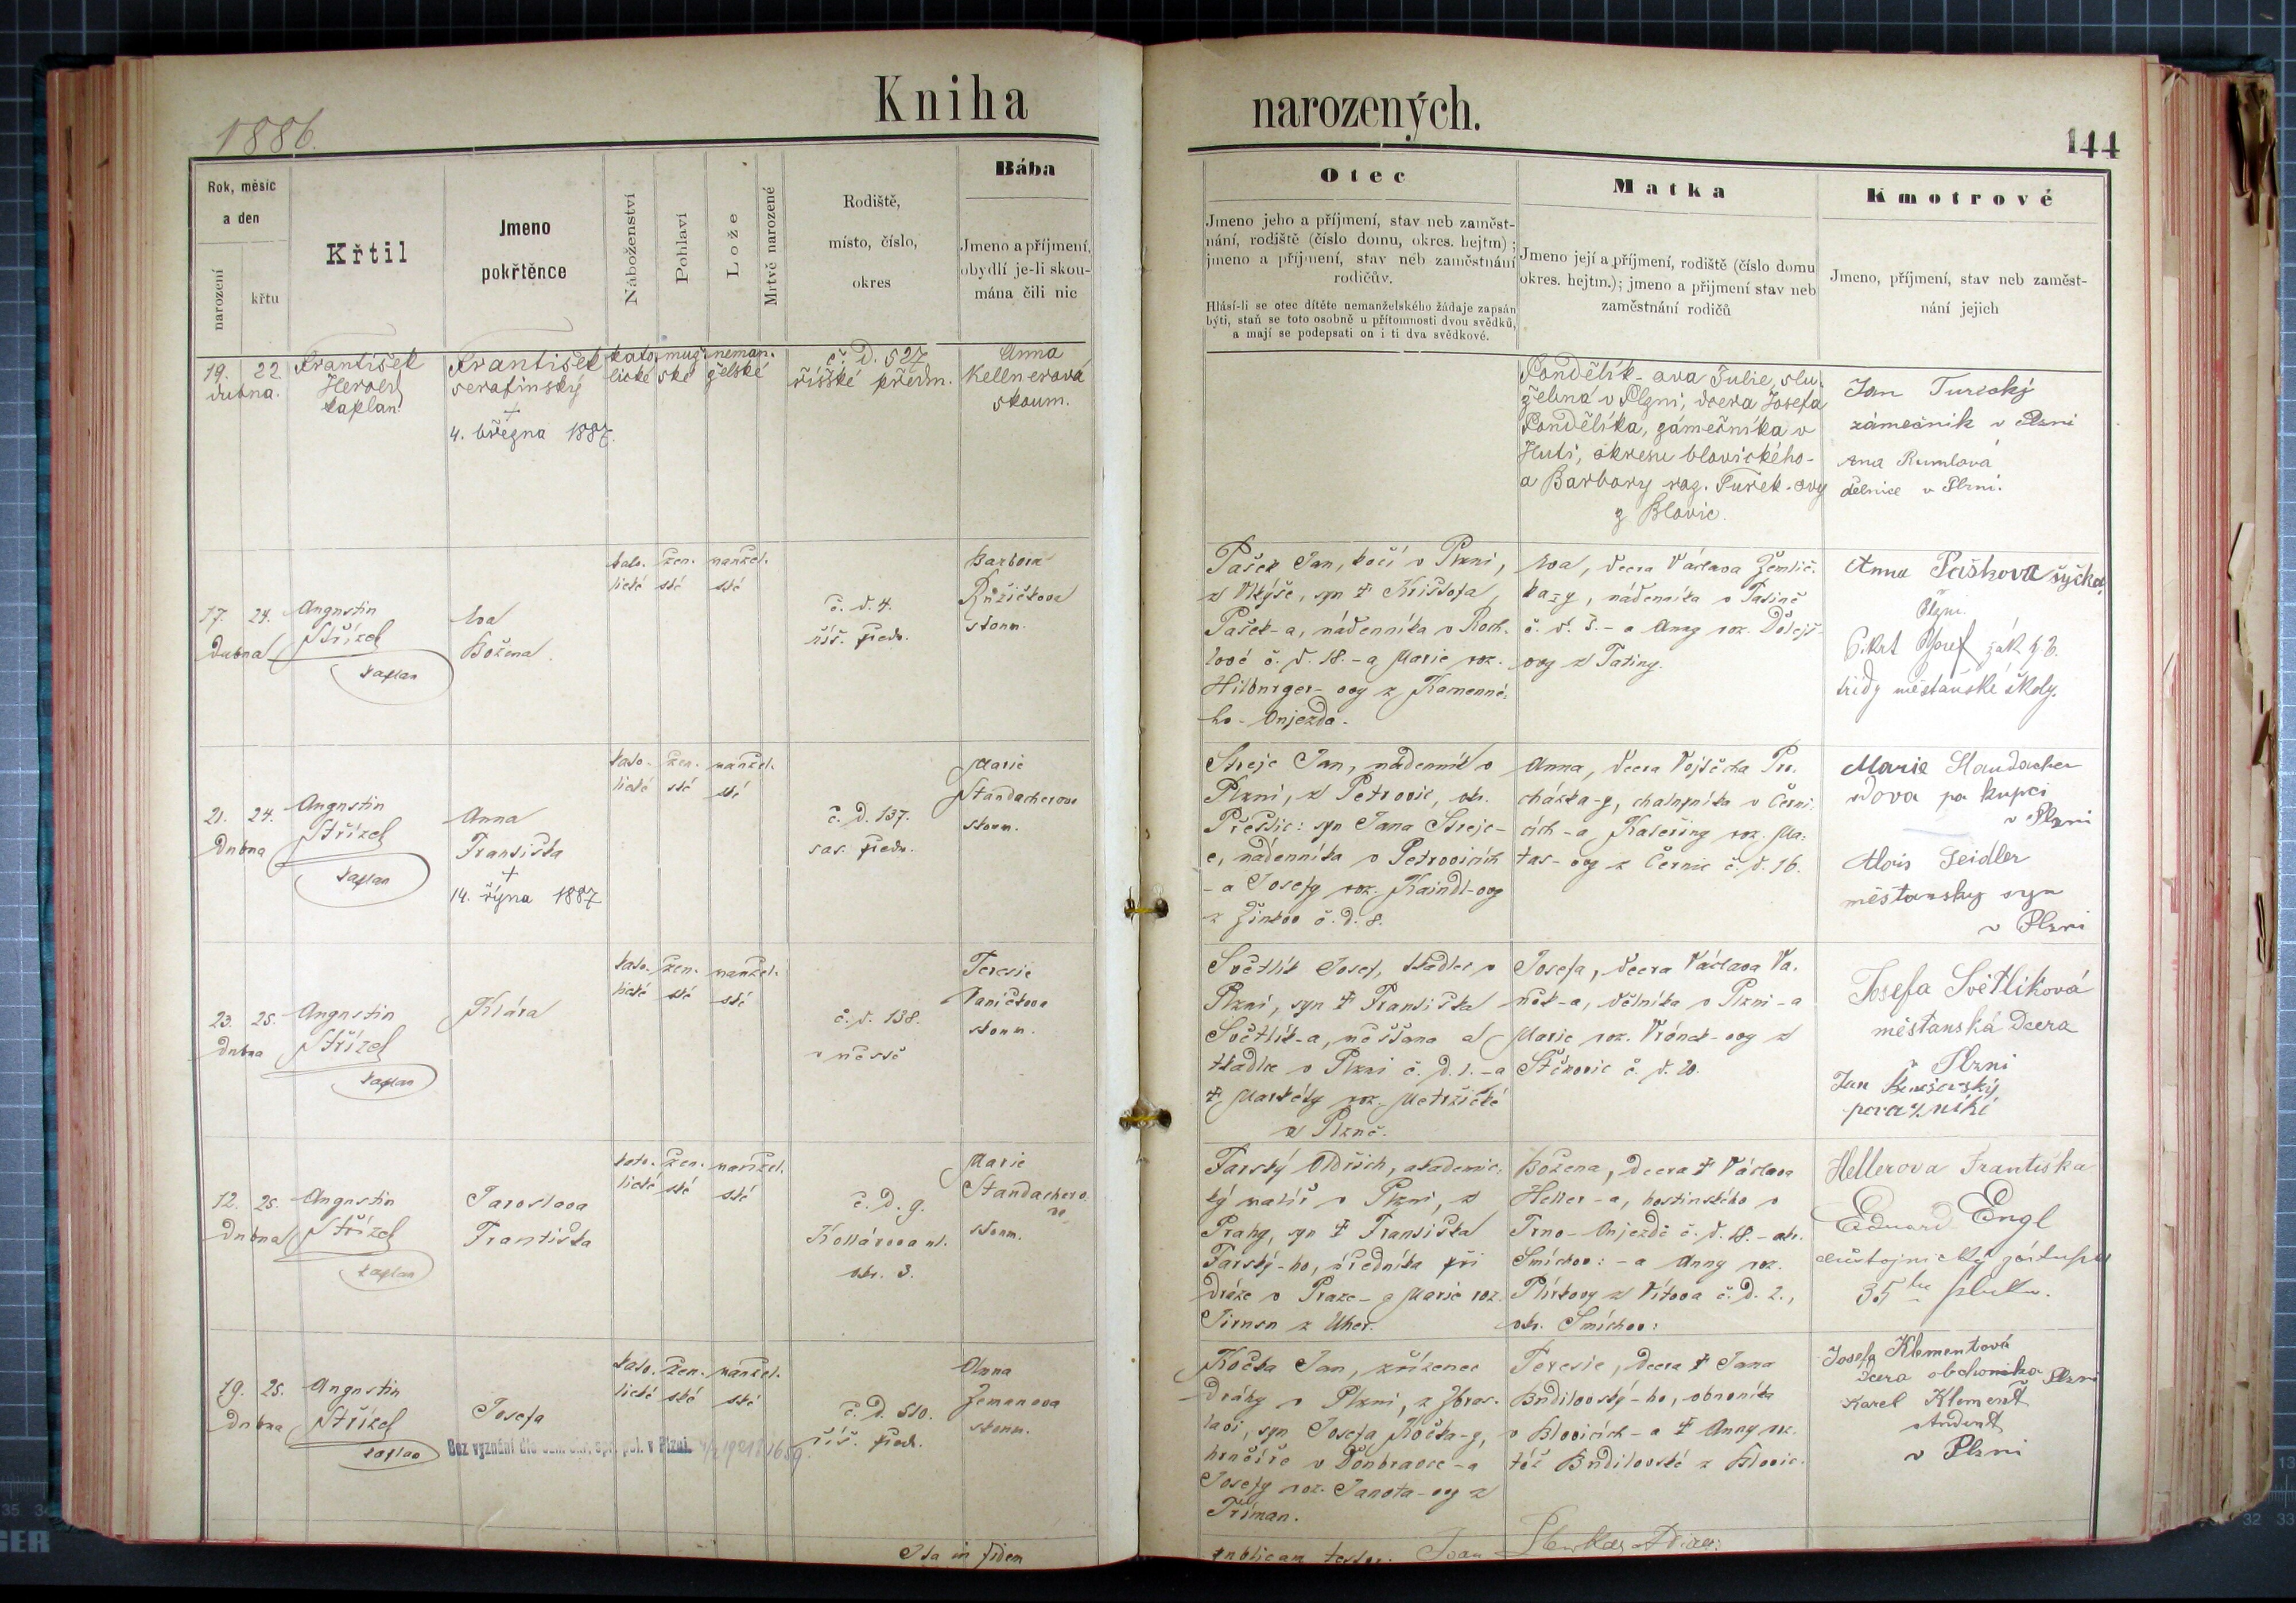 Kniha
narozených.
1886.
144
Rok, měsíc
a den
narození
křtu
Křtil
Jmeno
pokřtěnce
Náboženství
Pohlaví
Lože
Mrtvě narozené
Rodiště,
místo, číslo,
okres
Bába
Jmeno a příjmení,
obydlí je-li skou-
mána čili nic
Otec
Jmeno jeho a příjmení, stav neb zaměst-
nání, rodiště (číslo domu, okres. hejtm) ;
jmeno a příjmení, stav neb zaměstnání
rodičův.
Hlásí-li se otec dítěte nemanželského žádaje zapsán
býti, staň se toto osobně u přítomnosti dvou svědků,
a mají se podepsati on i ti dva svědkové.
Matka
Jmeno její a příjmení, rodiště (číslo domu
okres. hejtm.); jmeno a příjmení stav neb
zaměstnání rodičů
Kmotrové
Jmeno, příjmení, stav neb zaměst-
nání jejich
19. 22.
dubna.
František
Herold
kaplan
František
serafinský
+
4. března 1887.
kato-
lické
muž-
ské
neman-
želské
č. d. 527
říšské předm.
Anna
Kellnerová
skoum.
Pondělík-ova Julie, slu-
žebná v Plzni, dcera Josefa
Pondělíka, zámečníka v
Huti, okresu blovického-
a Barbory roz. Turek-ovy
z Blovic.
Jan Turecký
zámečník v Plzni
Ana Rumlova
dělnice v Plzni.
17. 24.
Dubna
Augustin
Střízel
kaplan
Eva
Božena.
kato-
lické
žen-
ské
manžel-
ské
č. d. 4.
říš. předm.
Barbora
Růžičkova
skoum.
Pašek Jan, kočí v Plzni,
z Vkýše, syn † Krištofa
Pašek-a, nádenníka v Roch-
lově č. d. 18. - a Marie roz.
Hilburger-ovy z Kamenné-
ho-Oujezda.
Eva, dcera Václava Žemlič-
ka-y, nádenníka v Tatině
č. d. 3. - a Anny roz. Dolejš-
ovy z Tatiny.
Anna Paškova
Plzni.
Cikrt Josef žák
třídy měšťanské školy.
21. 24.
Dubna
Augustin
Střízel
kaplan
Anna
Františka
+
14. října 1887
kato-
lické
žen-
ské
manžel-
ské
č. d. 137.
sas. předm.
Marie
Standacherova
skoum.
Streje Jan, nádenník v
Plzni, z Petrovic, okr.
Přeštic: syn Jana Streje-
e, nádenníka v Petrovicích
- a Josefy roz. Kaindl-ovy
z Žinkov č. d. 8.
Anna, dcera Vojtěcha Pro-
cházka-y, chalupníka v Černi-
cích - a Kateřiny roz. Ma-
tas-ovy z Černic č. d. 16.
Marie Standacher
v Plzni
Alois Seidler
měšťansky syn
v Plzni
23. 25.
Dubna
Augustin
Střízel
kaplan
Klára
kato-
lické
žen-
ské
manžel-
ské
č. d. 138.
v městě
Teresie
Vaničkova
skoum.
Světlík Josef, tkadlec v
Plzni, syn † Františka
Světlík-a, měšťana a
tkadlce v Plzni č. d. 1. - a
† Markéty roz. Metržické
z Plzně.
Josefa, dcera Václava Va-
něk-a, dělníka v Plzni - a
Marie roz. Vrának-ovy z
Štěnovic č. d. 20.
Josefa Světlíková
měšťanská Dcera
v Plzni
Jan
12. 25.
Dubna
Augustin
Střízel
kaplan
Jaroslava
Františka
kato-
lické
žen-
ské
manžel-
ské
č. d. 9.
Kollárova ul.
okr. 3.
Marie
Standachero-
va
skoum.
Farský Oldřich, akademic-
ký malíř v Plzni, z
Prahy, syn † Františka
Farský-ho, úředníka při
dráze v Praze - a Marie roz.
z Uher.
Božena, dcera † Václava
Heller-a, hostinského v
Trno-Oujezdě č. d. 18. - okr.
Smíchov: - a Anny roz.
z Vítova č. d. 2.,
okr. Smíchov:
Hellerova Františka
Eduard Engl
důstojnický zástupce
35ho pluku.
19. 25.
Dubna
Augustin
Střízel
kaplan
Josefa
kato-
lické
žen-
ské
manžel-
ské
č. d. 510.
říš. předm.
Anna
Zemanova
skoum.
Bez vyznání dle ozn. okr. spr. pol. v Plzni.
Kočka Jan, zřízenec
dráhy v Plzni, z Zbras-
lavi, syn Josefa Kočka-y,
hrnčíře v Doubravce - a
Josefy roz. Janota-ovy z
Tříman.
Teresie, dcera † Jana
Budilovský-ho, obuvníka
v Blovicích - a † Anny roz.
též Budilovské z Blovic.
Josefa Klementová
dcera obchodníka Plzni
Karel Klement
student
v Plzni
Ita in fidem
publicam testor: Joan